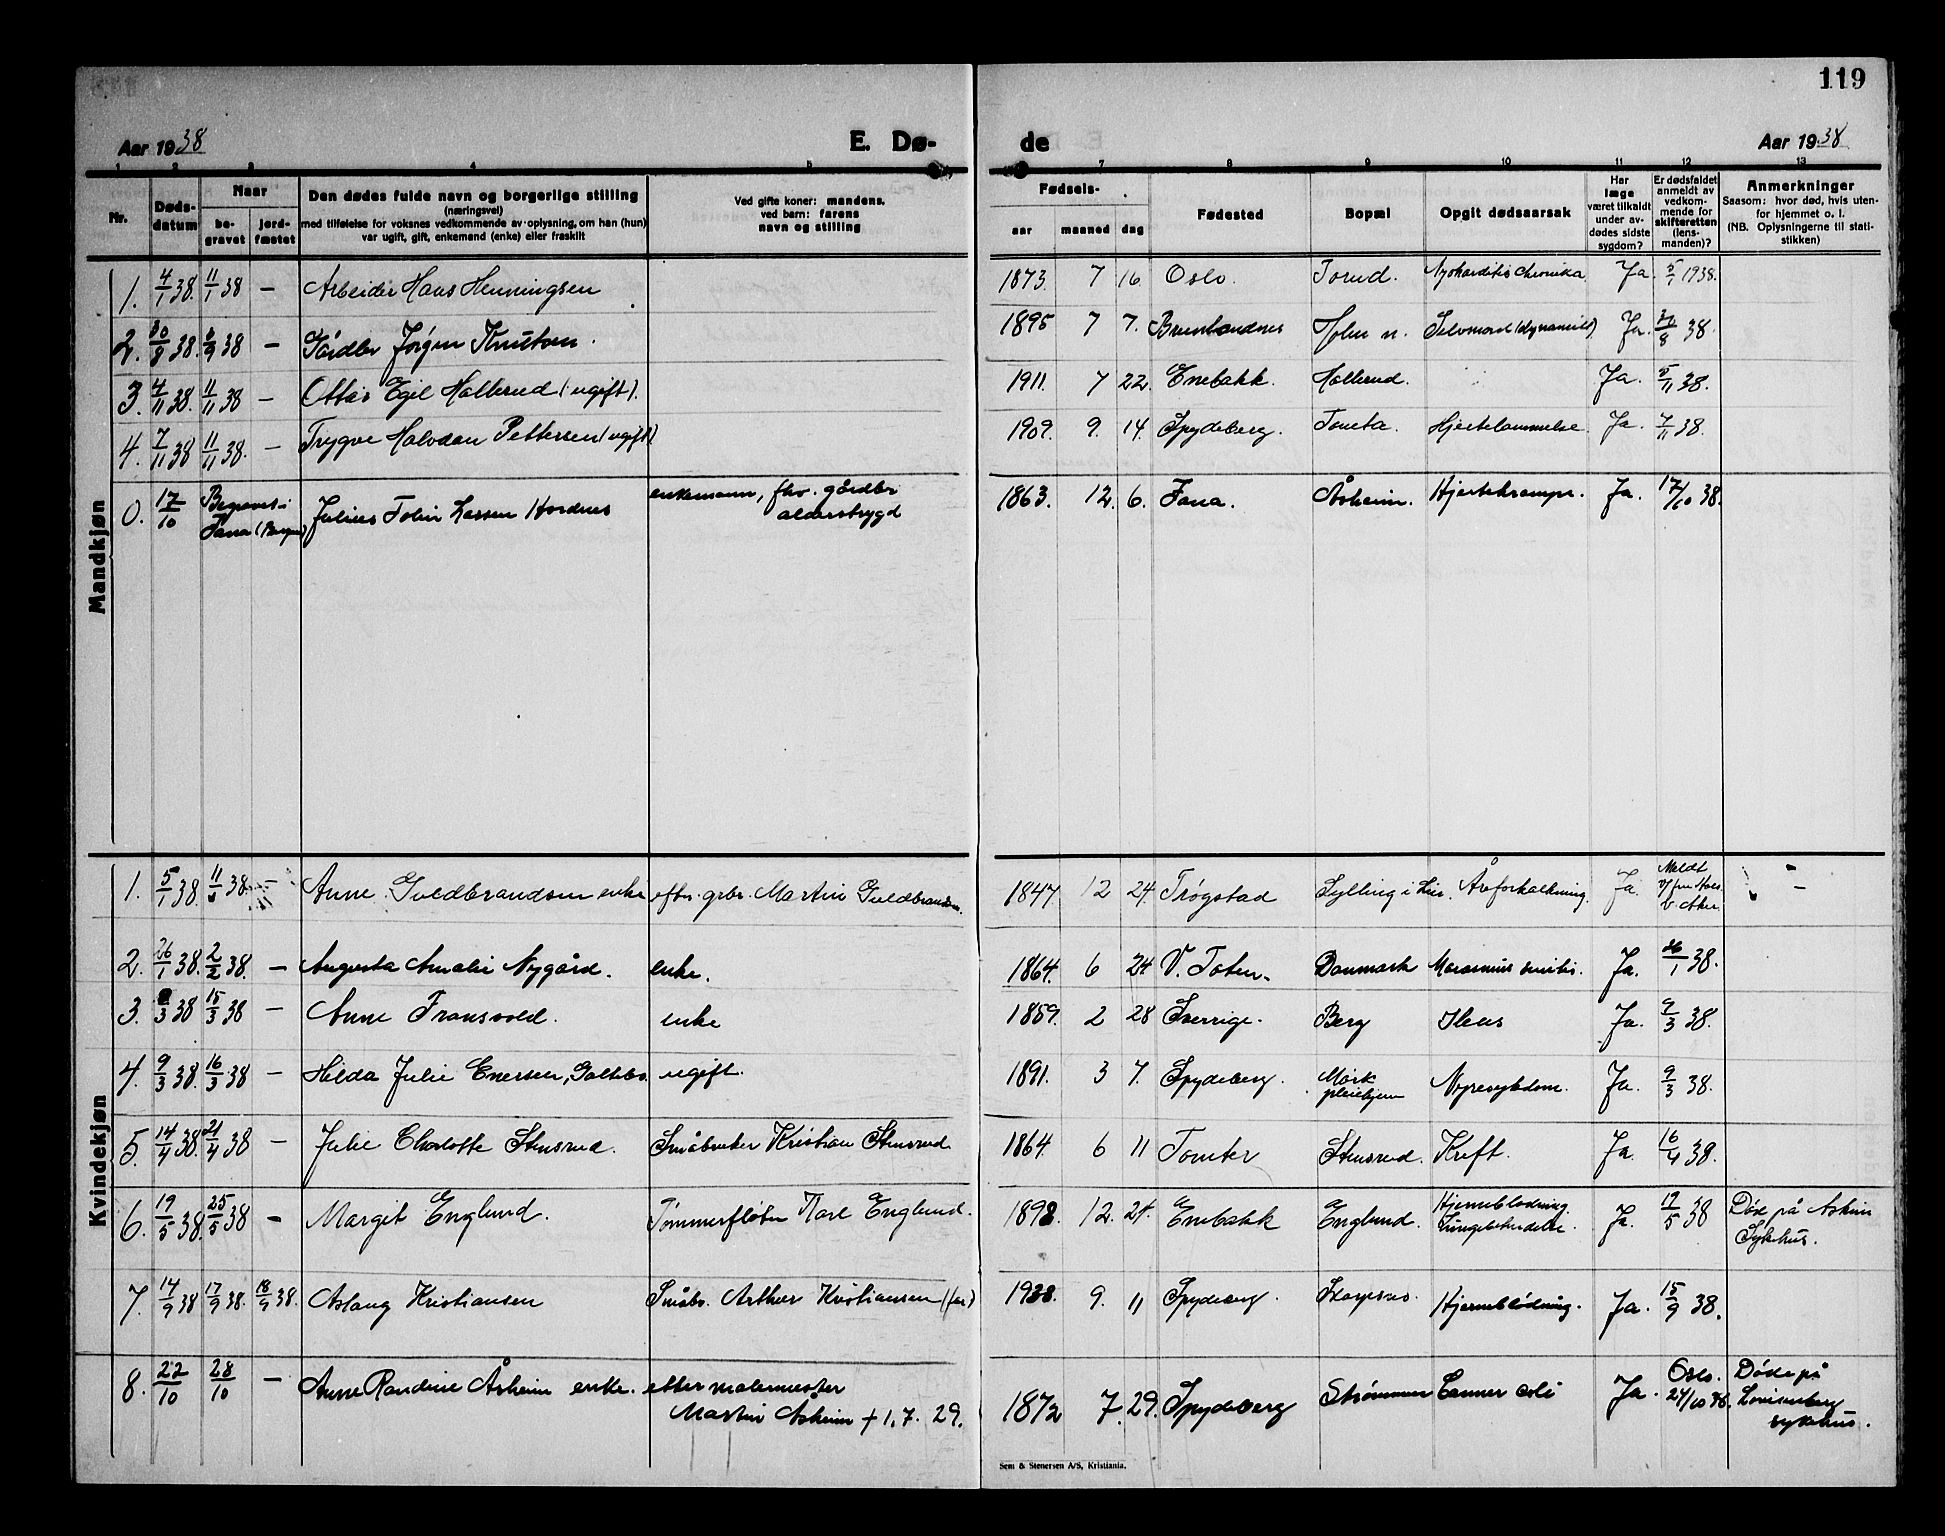 119
Aar 1938 E. Dø- de Aar 1938
1 2 3 4 5 7 8 9 10 11 12 13
Nr.
Døds-
datum
Naar
be-
gravet
jord-
fæstet
Den dødes fulde navn og borgerlige stilling
(næringsvei)
med tilføielse for voksnes vedkommende av oplysning, om han (hun)
var ugift, gift, enkemand (enke) eller fraskilt
Ved gifte koner: mandens,
ved barn: farens
navn og stilling
Fødsels-
aar maaned dag
Fødested
Bopæl
Opgit dødsaarsak
Har
læge
været tilkaldt
under av-
dødes sidste
sygdom?
Er dødsfaldet
anmeldt av
vedkom-
mende for
skifteretten
(lens-
manden)?
Anmerkninger
Saasom: hvor død, hvis uten-
for hjemmet o. l.
(NB. Oplysningerne til stati-
stikken)
Mandkjøn
1. 4/1 38. 11/1 38 — Arbeider Hans Henningsen 1873. 7 16. Oslo. Torud. Myokarditis chronika Ja. 5/1 1938.
2. 30/8 38. 6/9 38 — Gårdbr Jörgen Knutsen. 1895 7 7. Holen n. Selvmord (dynamitt) Ja. 30/8 38.
3. 4/11 38. 11/11 38 — Ottar Egil Hallerud (ugift). 1911. 7 22. Enebakk. Hallerud. Ja. 5/11 38.
4. 7/11 38 11/11 38. — Trygve Halvdan Pettersen (ugift) 1909. 9. 14. Spydeberg. Tometa. Hjertelammelse. Ja. 7/11 38.
0. 17/10 Begravet i Julius Tolin Lassen Hordnes enkemann, fhv. gårdbr 1863. 12. 6. Fana. Åsheim. Hjertekrampe. Ja. 17/10 38.
Fana (Bergen) alderstrygd
Kvindekjøn
1. 5/1 38. 11/1 38. — Anne Guldbrandsen enke efter grbr. Martin Guldbrandsen. 1847. 12 24. Trøgstad Sylling i Lier. Åreforkalkning. Ja. Meldt
V. Aker —
2. 26/1 38. 2/2 38. — Augusta Amalie Nygård. enke. 1864. 6 24. V. Toten. Danmark Marasmus senilis. Ja. 26/1 38.
3. 9/3 38 15/3 38 — Anne Fransvold. enke 1859. 2 28 Sverrige. Berg Ileus Ja. 9/3 38.
4. 9/3 38. 16/3 38 — Hilda Julie Enersen, ugift. 1891. 3 7. Spydeberg. Mörk Nyresykdom. Ja. 9/3 38.
pleiehjem
5. 14/4 38. 21/4 38 — Julie Charlotte Stensrud. Småbruker Kristian Stensrud. 1864. 6 11 Tomter Stensrud. Kreft. Ja. 16/4 38.
6. 19/5 38. 25/5 38 — Margit Englund. Tømmerfløter Karl Englund. 1898. 12. 24. Enebakk Englund. Hjerneblødning. Ja. 19/5 38 Døde på Askim
Lungebetendelse. Sykehus.
7. 14/9 38 17/9 38. 18/9 38. Aslaug Kristiansen Småbr. Arthur Kristiansen (far) 1938. 9. 11 Spydeberg. Hjerneblödning. Ja. 15/9 38.
8. 22/10 28/10 — Anne Randine Åsheim enke. etter malermester 1872 7. 29. Spydeberg Strømmen Cancer coli Ja. Oslo. Døde på
Martin Asheim + 1. 7. 29. 24/10 38. Lovisenberg
sykehus.
Sem & Stenersen A/S, Kristiania.